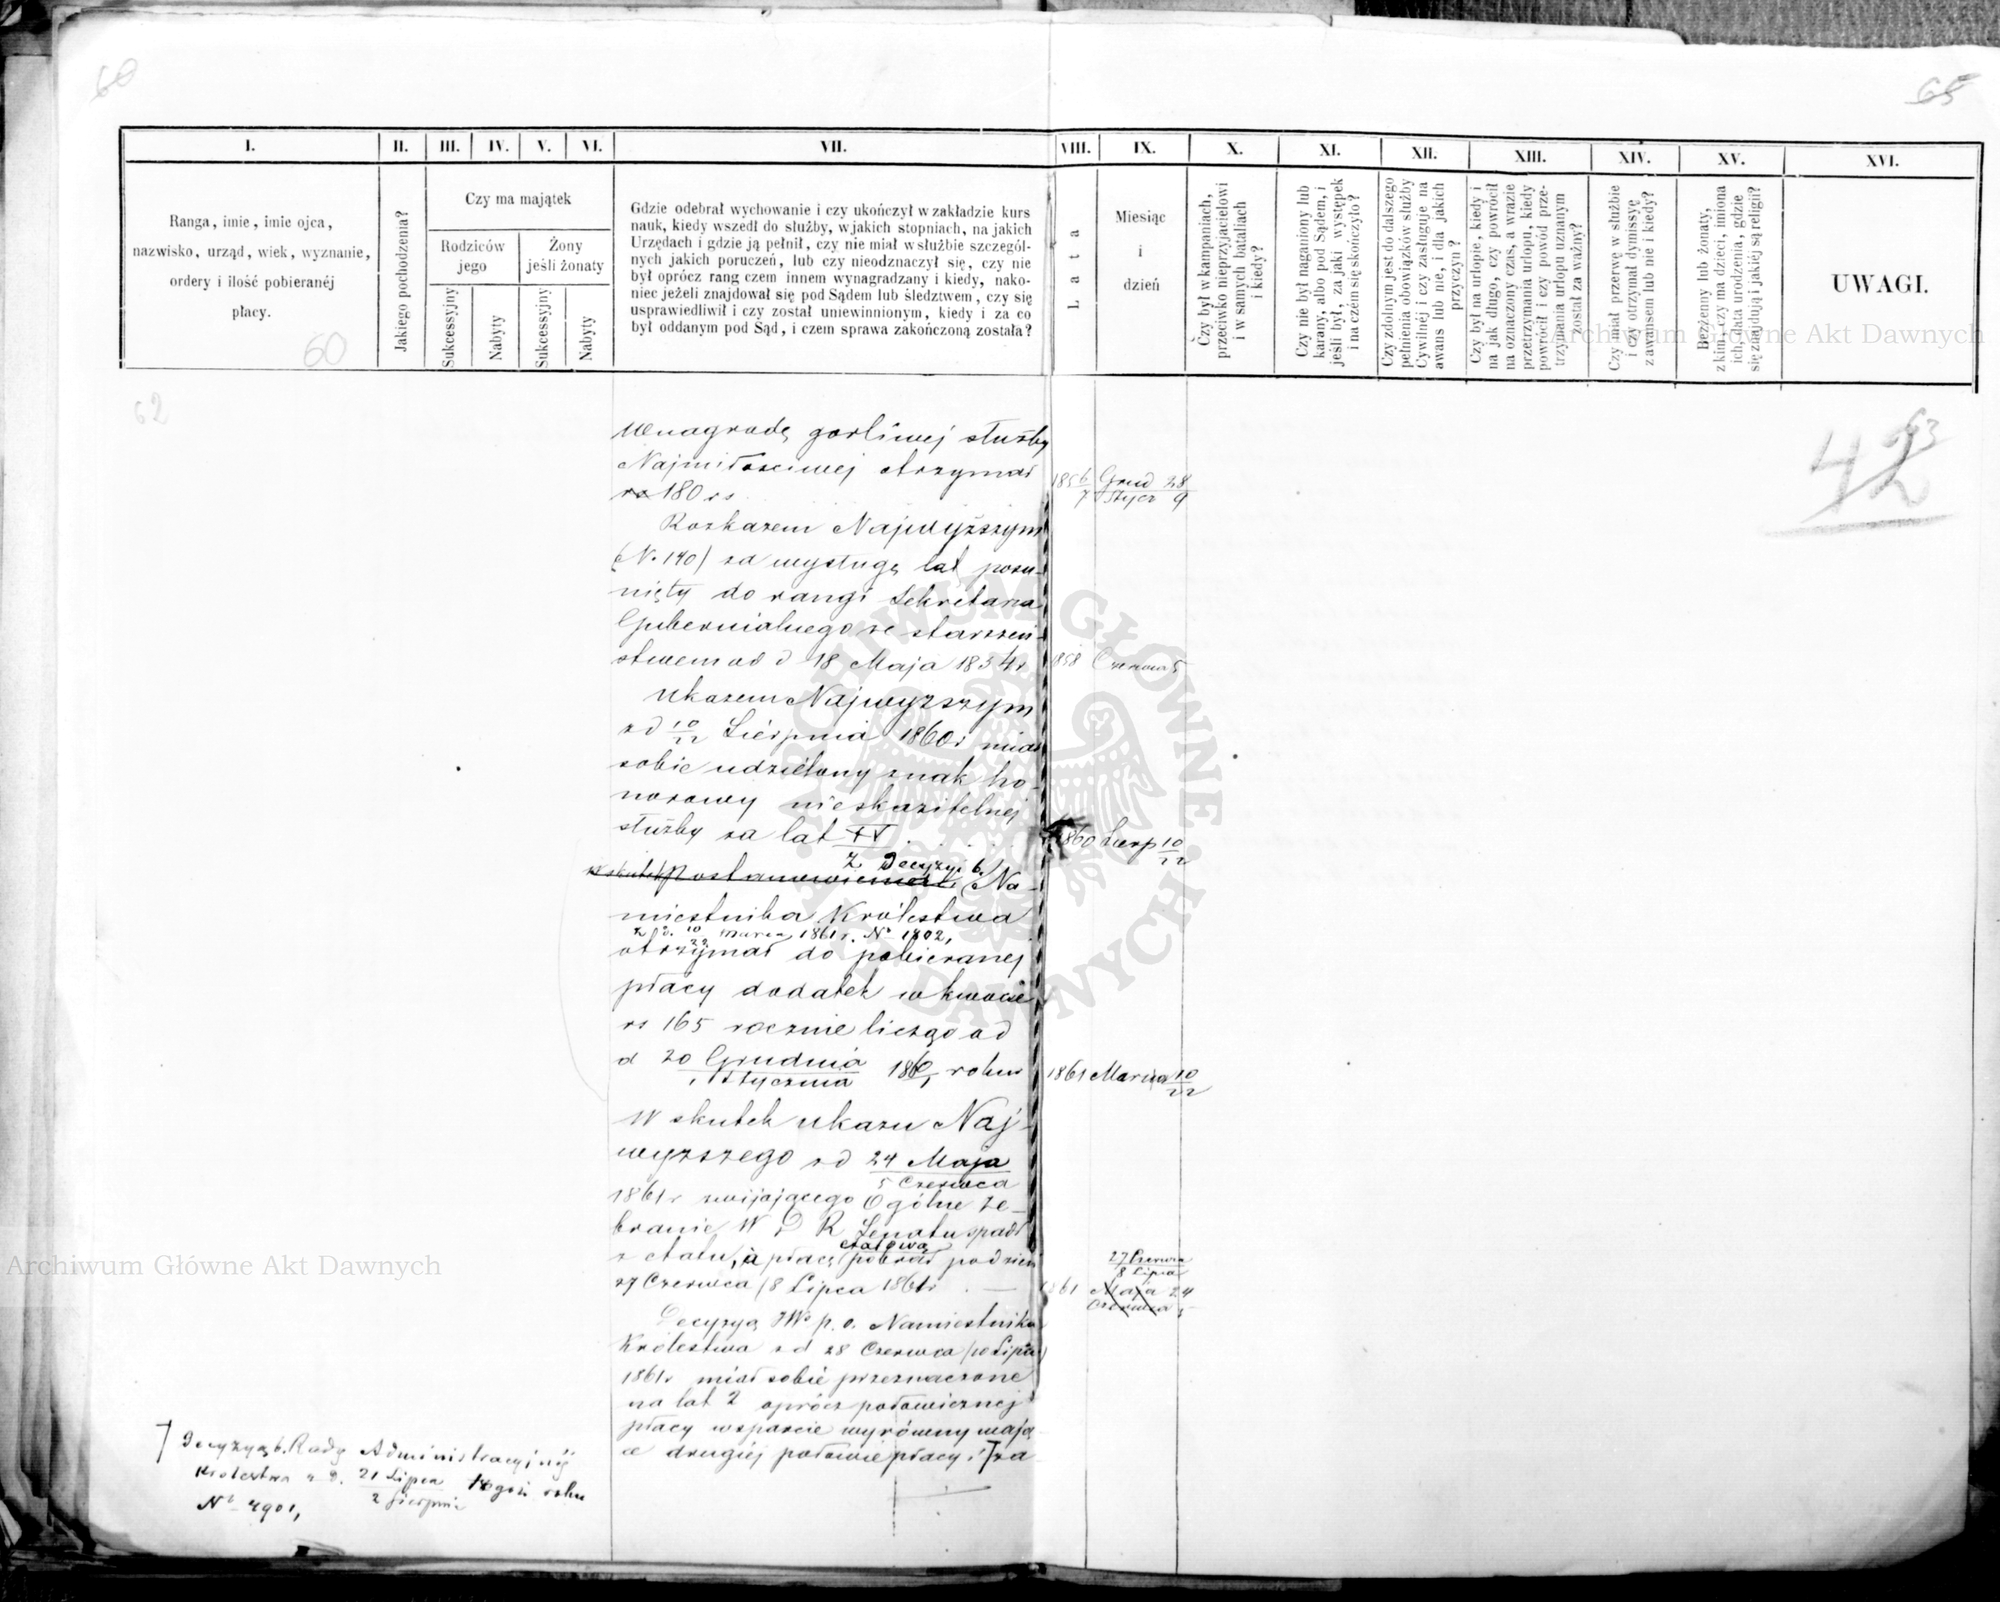 60
65
I.
II.
III.
IV.
V.
VI.
VII.
VIII.
IX.
X.
XI.
XII.
XIII.
XIV.
XV.
XVI.
Ranga, imie, imie ojca,
nazwisko, urząd, wiek, wyznanie,
ordery i ilość pobieranéj
płacy.
60
Jakiego pochodzenia?
Czy ma majątek
Rodziców
jego
Żony
jeśli żonaty
Sukcessyjny
Nabyty
Sukcessyjny
Nabyty
Gdzie odebrał wychowanie i czy ukończył w zakładzie kurs
nauk, kiedy wszedł do służby, w jakich stopniach, na jakich
Urzędach i gdzie ją pełnił, czy nie miał w służbie szczegól-
nych jakich poruczeń, lub czy nieodznaczył się, czy nie
był oprócz rang czem innem wynagradzany i kiedy, nako-
niec jeżeli znajdował się pod Sądem lub śledztwem, czy się
usprawiedliwił i czy został uniewinnionym, kiedy i za co
był oddanym pod Sąd, i czem sprawa zakończoną została?
Lata
Miesiąc
i
dzień
Czy był w kampaniach,
przeciwko nieprzyjacielowi
i w samych bataliach
i kiedy?
Czy nie był naganiony lub
karany, albo pod Sądem, i
jeśli był, za jaki występek
i na czém się skończyło?
Czy zdolnym jest do dalszego
pełnienia obowiązków służby
Cywilnéj i czy zasługuje na
awans lub nie, i dla jakich
przyczyn?
Czy był na urlopie, kiedy i
na jak długo, czy powrócił
na oznaczony czas, a wrazie
przetrzymania urlopu, kiedy
powrócił i czy powód prze-
trzymania urlopu uznanym
został za ważny?
Czy miał przerwę w służbie
i czy otrzymał dymissyę
z awansem lub nie i kiedy?
Bezżenny lub żonaty,
z kim, czy ma dzieci, imiona
ich, data urodzenia, gdzie
się znajdują i jakiéj są religii?
UWAGI.
Archiwum Główne Akt Dawnych
62
63
42
W nagrodę gorliwej służby
Najmiłościwiej otrzymał
rs 180 rs
1856/7 Grud 28
Stycz 9
Rozkazem Najwyższym
(N. 140) za wysługę lat posu-
nięty do rangi Sekretarza
Gubernialnego ze starszeń-
stwem od d 18 Maja 1854 r
1858 Czerwca 5
Ukazem Najwyższym
z d 10/22 Sierpnia 1860 r miał
sobie udzielony znak ho-
norowy nieskazitelnej
służby za lat XV
1860 Sierp 10/22
z Decyzyi b.
W skutek Postanowienia Na-
miestnika Królestwa
z d. 10/22 Marca 1861 r. No 1802,
otrzymał do pobieranej
płacy dodatek w kwocie
rs 165 rocznie licząc od
d 20 Grudnia 1860/1 roku
1 Stycznia
1861 Marca 10/22
W skutek ukazu Naj-
wyższego z d 24 Maja
5 Czerwca
1861 r zwijającego Ogólne Ze-
branie W D R Senatu spadł
z etatu, a płacę etatową pobrał po dzień
27 Czerwca /8 Lipca 1861 r
27 Czerwca
8 Lipca
1861 Maja 24
Czerwca 5
Decyzyą JW p. o. Namiestnika
Królestwa z d 28 Czerwca /10 Lipca)
1861 r miał sobie przeznaczone
na lat 2 oprócz połowicznej
płacy wsparcie wyrównywają-
ce drugiéj połowie płacy, i za
Decyzyą b. Rady Administracyjnéj
Królestwa z d. 21 Lipca
2 Sierpnia
roku
No 4901,
ARCHIWUM GŁÓWNE AKT DAWNYCH
Archiwum Główne Akt Dawnych